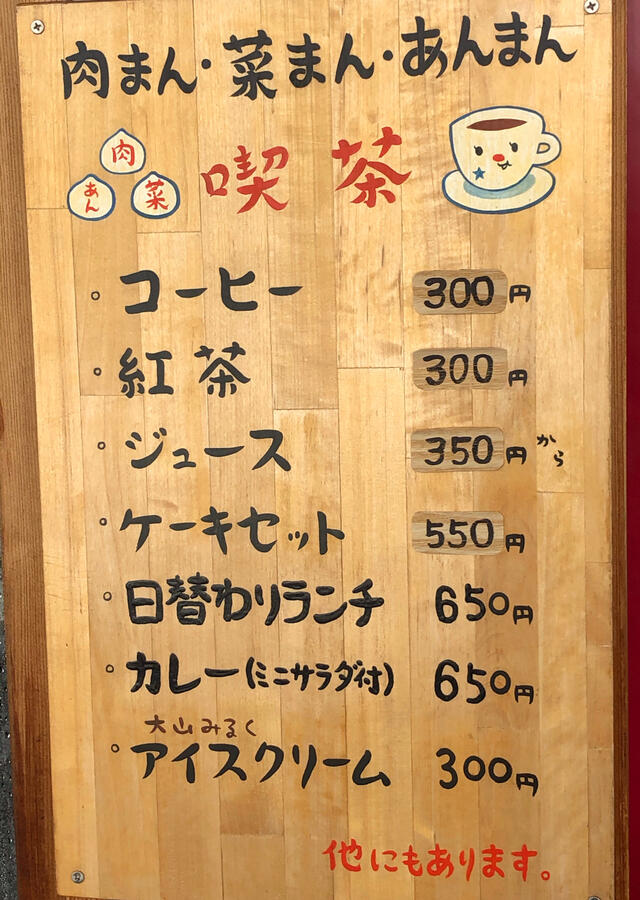 肉まん・菜まん・あんまん
肉
あん
菜
喫茶
◦コーヒー 300円
◦紅茶 300円
◦ジュース 350円から
◦ケーキセット 550円
◦日替わりランチ 650円
◦カレー(ミニサラダ付) 650円
大山みるく
◦アイスクリーム 300円
他にもあります。